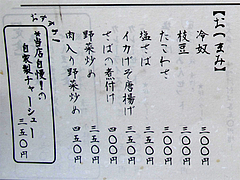 【おつまみ】
冷奴 三〇〇円
枝豆 三〇〇円
たこわさ 三五〇円
塩さば 三五〇円
イカげそ唐揚げ 三五〇円
さばの煮付け 四〇〇円
野菜炒め 三五〇円
肉入り野菜炒め 四五〇円
*当店自慢!の
自家製チャーシュー
三五〇円